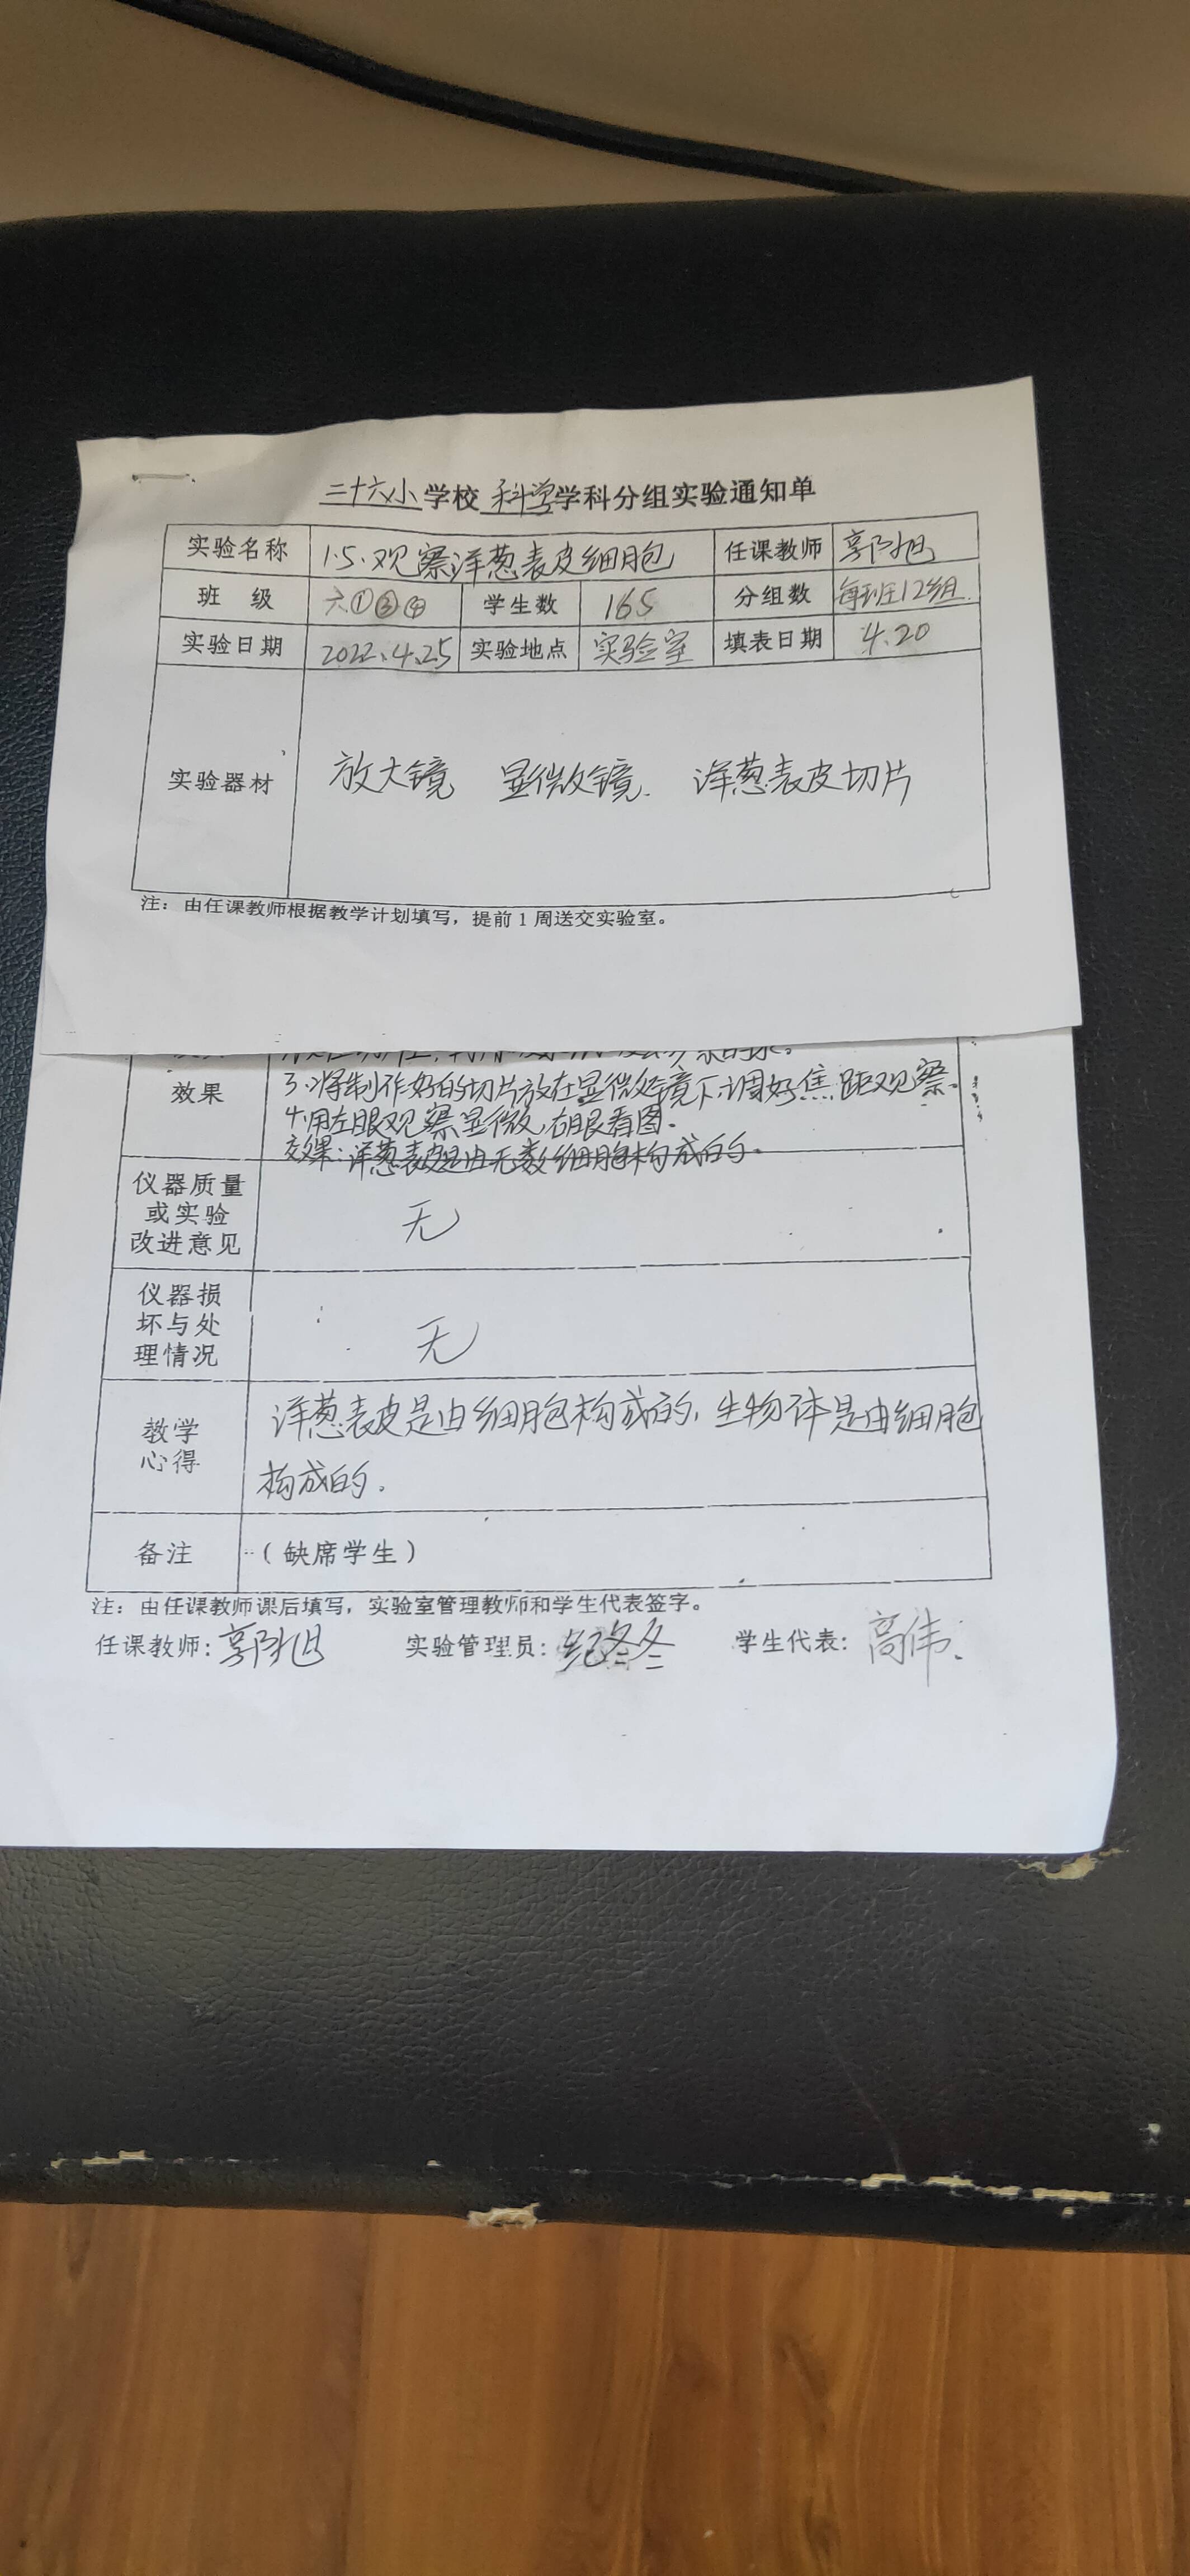 二十六小学校 科学学科分组实验通知单
实验名称 1.5.观察洋葱表皮细胞 任课教师 郭旭
班 级 六①③④ 学生数 165 分组数 每班12组
实验日期 2022.4.25 实验地点 实验室 填表日期 4.20
实验器材 放大镜 显微镜. 洋葱表皮切片
注：由任课教师根据教学计划填写，提前1周送交实验室。
效果
3.将制作好的切片放在显微镜下,调好焦距观察.
4.用左眼观察显微,右眼看图.
效果:洋葱表皮是由无数细胞构成的.
仪器质量
或实验
改进意见
无
仪器损
坏与处
理情况
无
教学
心得
洋葱表皮是由细胞构成的,生物体是由细胞
构成的.
备注 （缺席学生）
注：由任课教师课后填写，实验室管理教师和学生代表签字。
任课教师:郭旭 实验管理员:纪冬冬 学生代表:高伟.